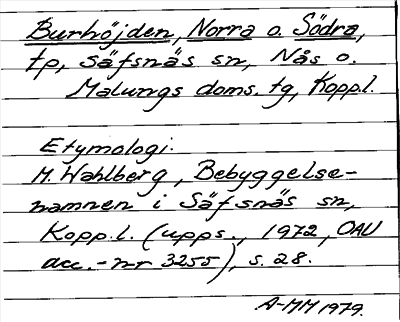 Burhöjden, Norra o. Södra,
tp, Säfsnäs sn, Nås o.
Malungs doms. tg, Kopp.l.
Etymologi:
M. Wahlberg, Bebyggelse-
namnen i Säfsnäs sn,
Kopp.l. (upps., 1972, OAU
acc.-nr 3255), s. 28.
A-MM 1979.